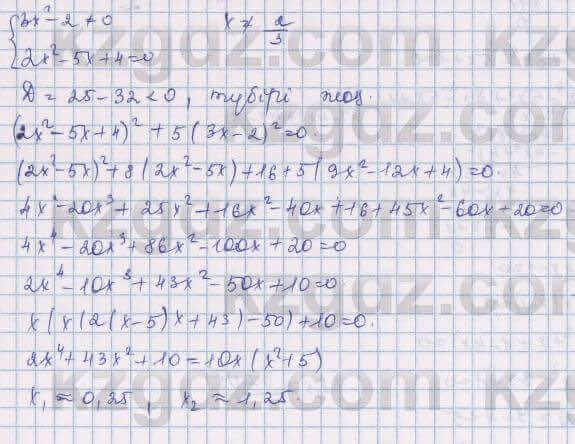 {3x²-2≠0 x≠2/3
{2x²-5x+4=0
D=25-32<0, түбірі жоқ.
(2x²-5x+4)²+5(3x-2)²=0
(2x²-5x)²+8(2x²-5x)+16+5(9x²-12x+4)=0.
4x⁴-20x³+25x²+16x²-40x+16+45x²-60x+20=0
4x⁴-20x³+86x²-100x+20=0
2x⁴-10x³+43x²-50x+10=0
x(x(2(x-5)x+43)-50)+10=0.
2x⁴+43x²+10=10x(x²+5)
x₁≈0,25, x₂≈1,25.
kzgdz.com